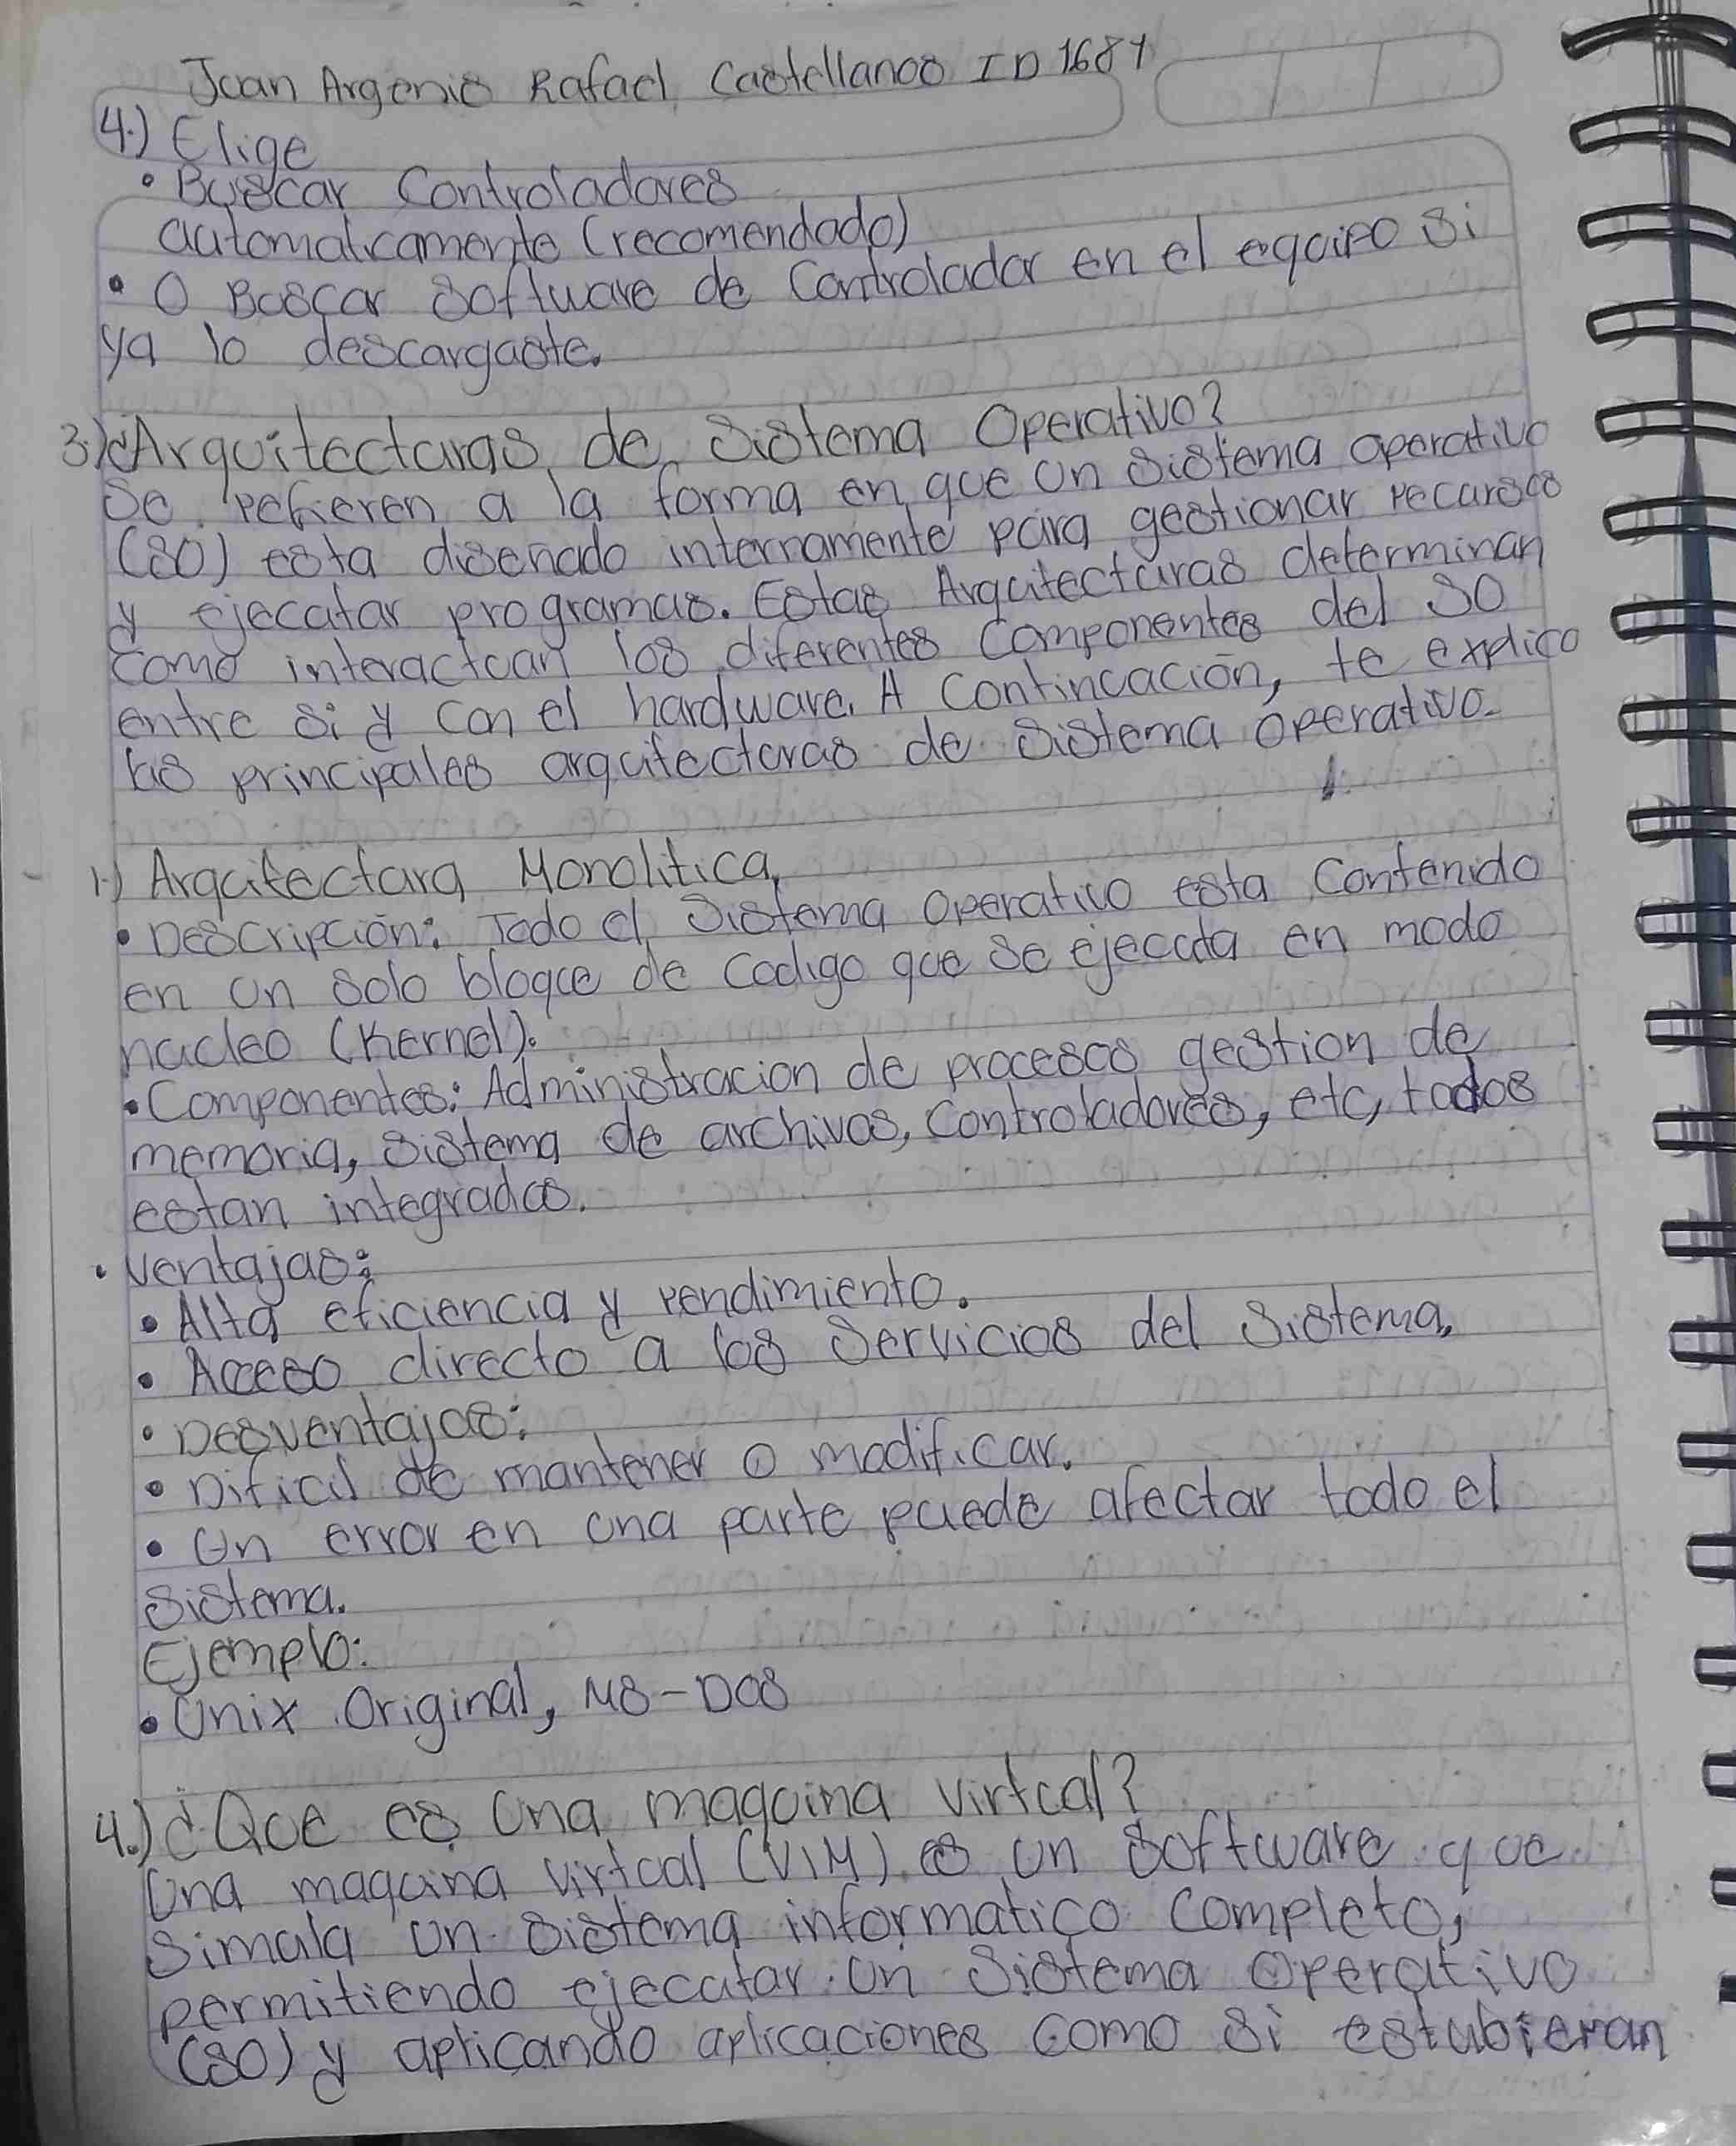 Juan Argenis Rafael Castellanos ID 1684
4.) Elige
• Buscar Controladores
automaticamente (recomendado)
• O Buscar Software de Controlador en el equipo si
ya lo descargaste.
3.) ¿Arquitecturas de Sistema Operativo?
Se refieren a la forma en que un Sistema operativo
(SO) esta diseñado internamente para gestionar recursos
y ejecutar programas. Estas Arquitecturas determinan
como interactuan los diferentes Componentes del SO
entre si y con el hardware. A Continuación, te explico
las principales arquitecturas de Sistema operativo.
1.) Arquitectura Monolitica.
• Descripción: Todo el Sistema Operativo esta Contenido
en un solo bloque de Codigo que se ejecuta en modo
nucleo (Kernel).
• Componentes: Administracion de procesos gestion de
memoria, Sistema de archivos, Controladores, etc, todos
estan integrados.
• Ventajas:
• Alta eficiencia y rendimiento.
• Acceso directo a los Servicios del Sistema.
• Desventajas:
• Dificil de mantener o modificar.
• Un error en una parte puede afectar todo el
Sistema.
Ejemplo:
• Unix Original, MS-DOS
4.) ¿Que es una maquina virtual?
Una maquina virtual (VM) es un Software que
Simula un sistema informatico Completo,
permitiendo ejecutar un Sistema Operativo
(SO) y aplicando aplicaciones como si estubieran